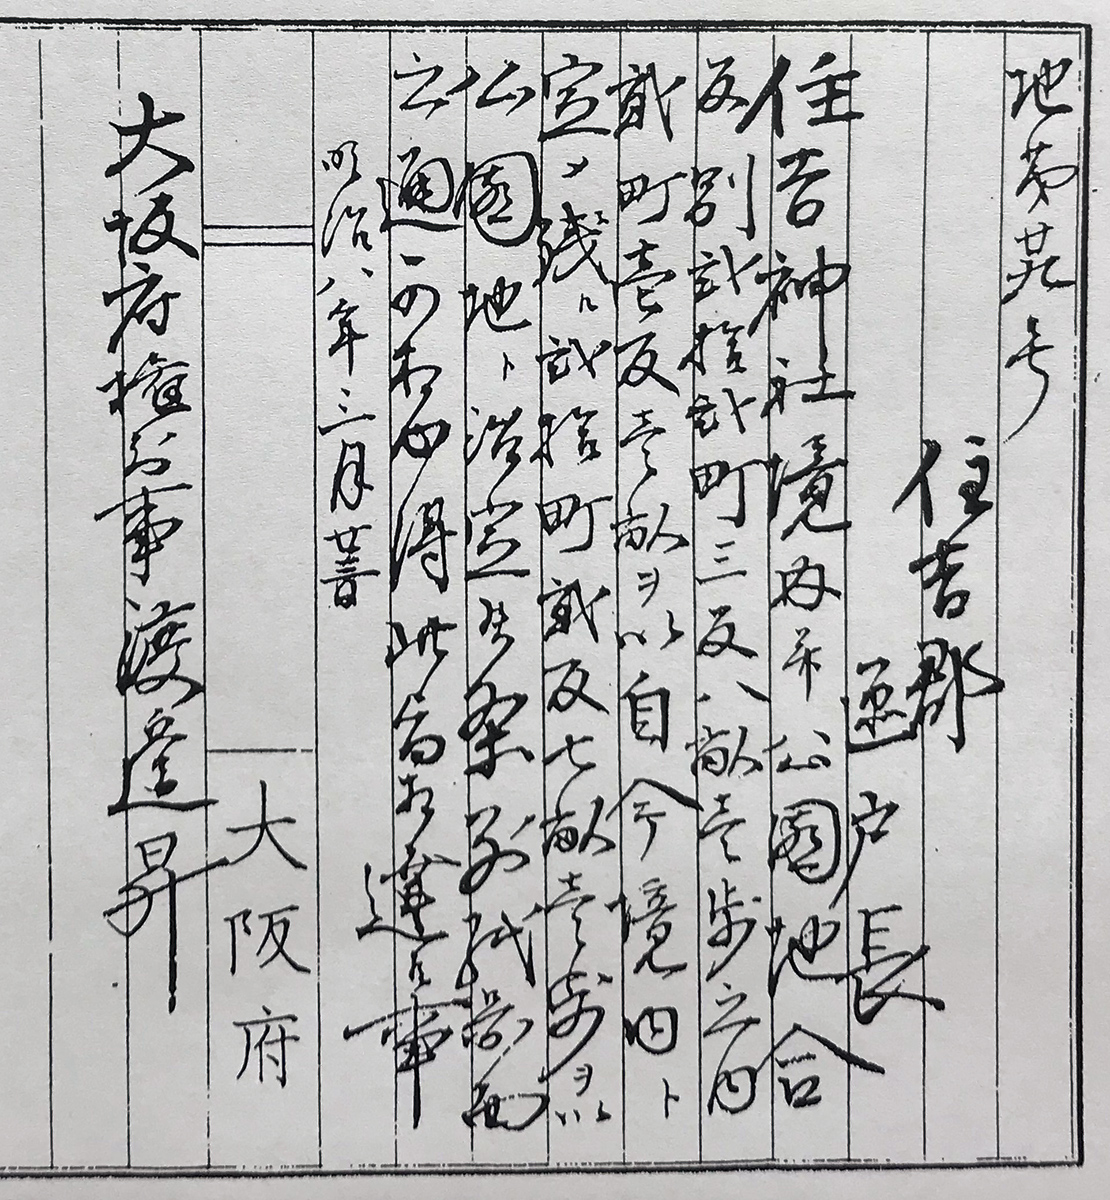 地第廿九号
住吉郡
区戸長
住吉神社境内并公園地合
反別弐拾弐町三反八畝壱歩之内
弐町壱反壱畝ヲ以自今境内ト
定メ残ル弐拾町弐反七畝壱歩ヲ以
公園地ト治定候条別紙絵図面
之通可相心得此旨相達候事
明治八年三月廿三日
大阪府
大坂府権知事渡邊昇